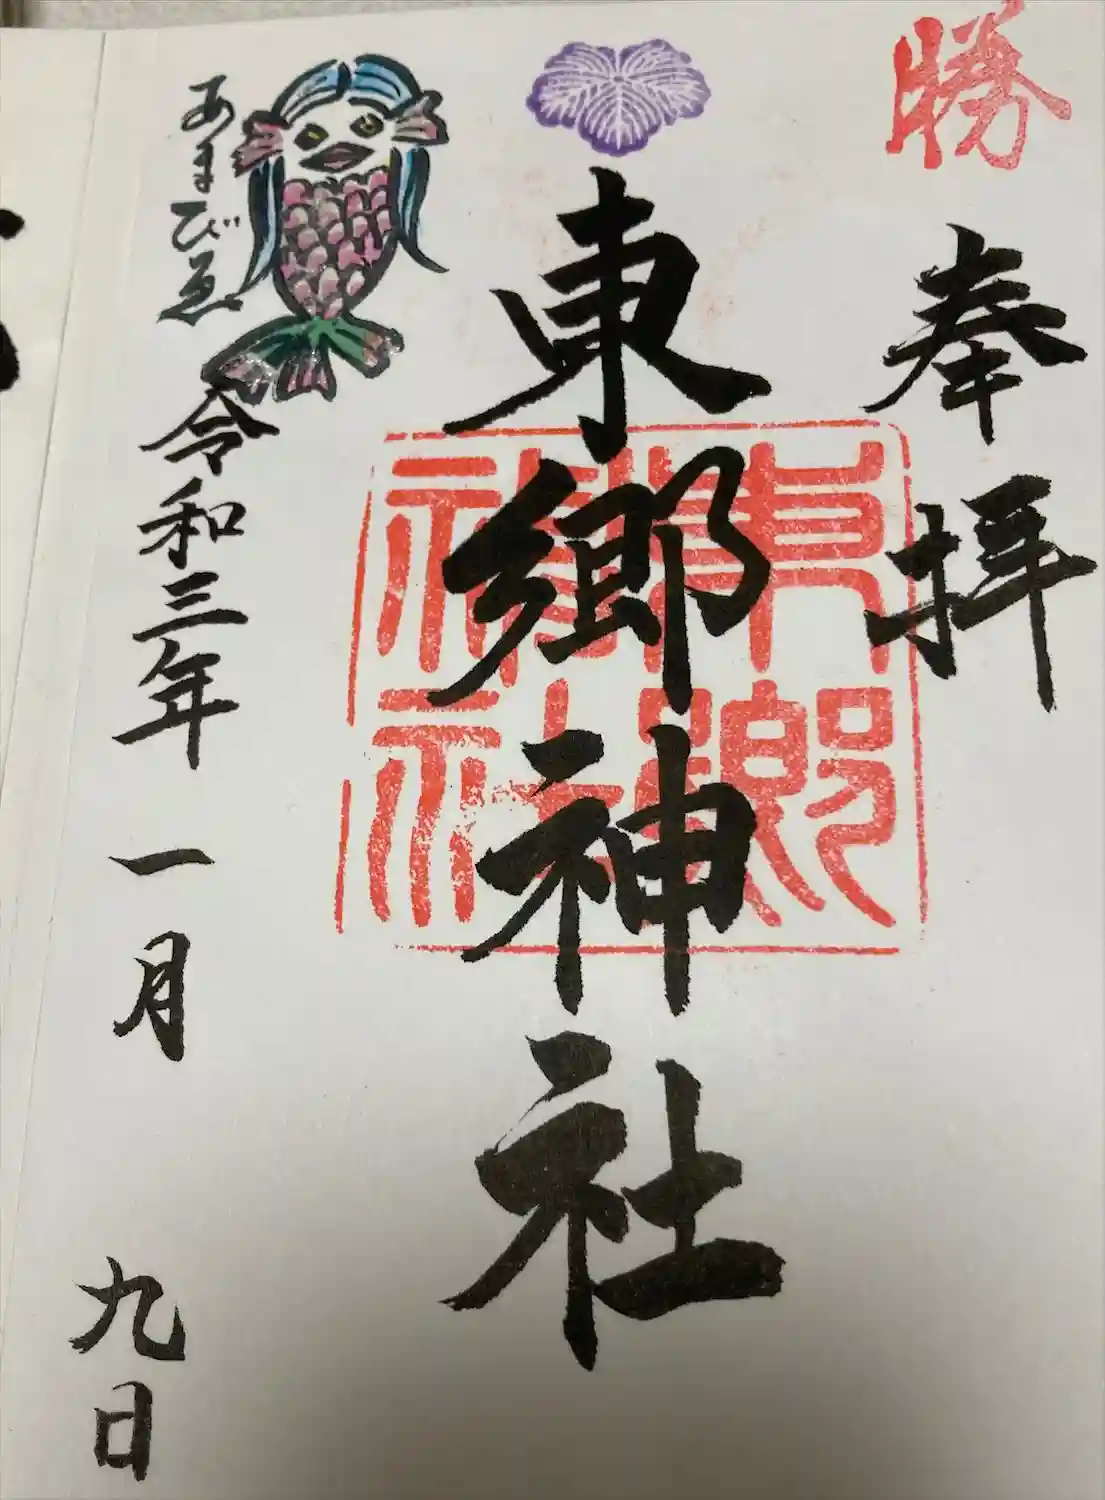 勝
奉拝
東郷神社
東郷神社
あまびゑ
令和三年一月九日